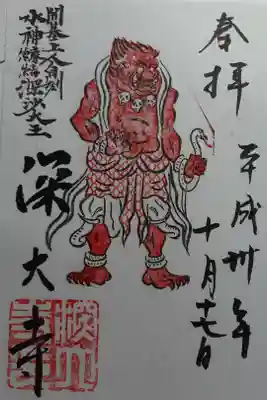 奉拝
平成卅年
十月十七日
開基上人自刻
水神縁結深沙大王
深大寺